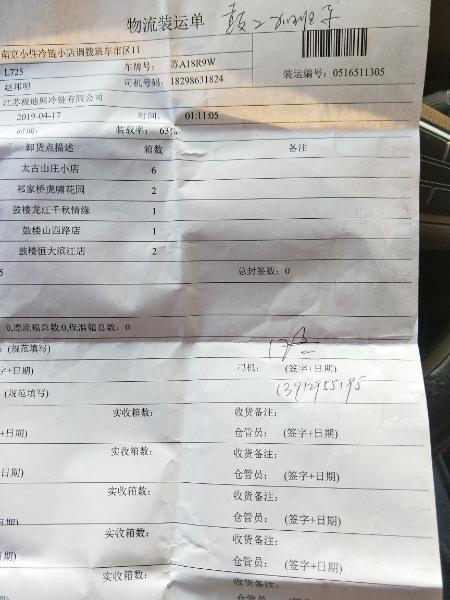 物流装运单
南京小件冷链小店调拨班车市区11
L725 车牌号: 苏A18R9W
赵邦明 司机号码: 18298631824
装运编号: 0516511305
江苏极地熊冷链有限公司
2019-04-17 时间: 01:11:05
时间: 装载率: 63%
卸货点描述 箱数 备注
太古山庄小店 6
祁家桥虎啸花园 2
鼓楼龙江千秋情缘 1
鼓楼山西路店 1
鼓楼恒大滨江店 2
5 总封签数: 0
0,漂流箱总数:0,保温箱总数: 0
: (规范填写)
字+日期) 司机: (签字+日期)
(规范填写) 13912955195
实收箱数: 收货备注:
+日期) 仓管员: (签字+日期)
实收箱数: 收货备注:
+日期) 仓管员: (签字+日期)
实收箱数: 收货备注:
日期) 仓管员: (签字+日期)
实收箱数: 收货备注:
日期) 仓管员: (签字+日期)
实收箱数: 收货备注:
仓管员: (签字+日期)